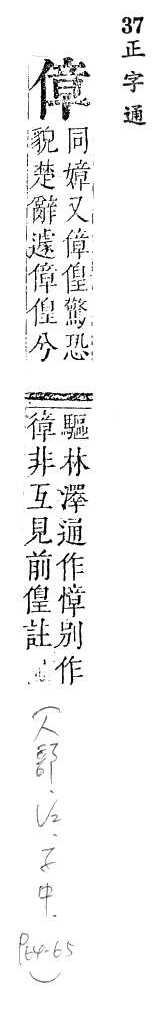 37
正字通
傽
同嫜又傽偟驚恐
貌楚辭遽傽偟兮
驅林澤通作慞别作
徨非互見前偟註
人部
P64-65